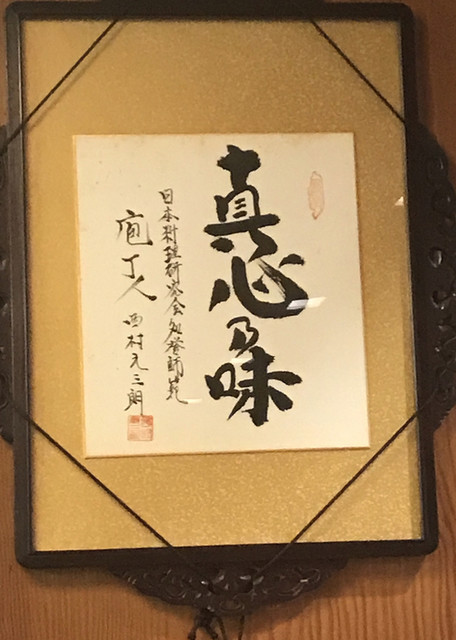 真心乃味
日本料理研究会名誉師範
庖丁人 西村元三朗